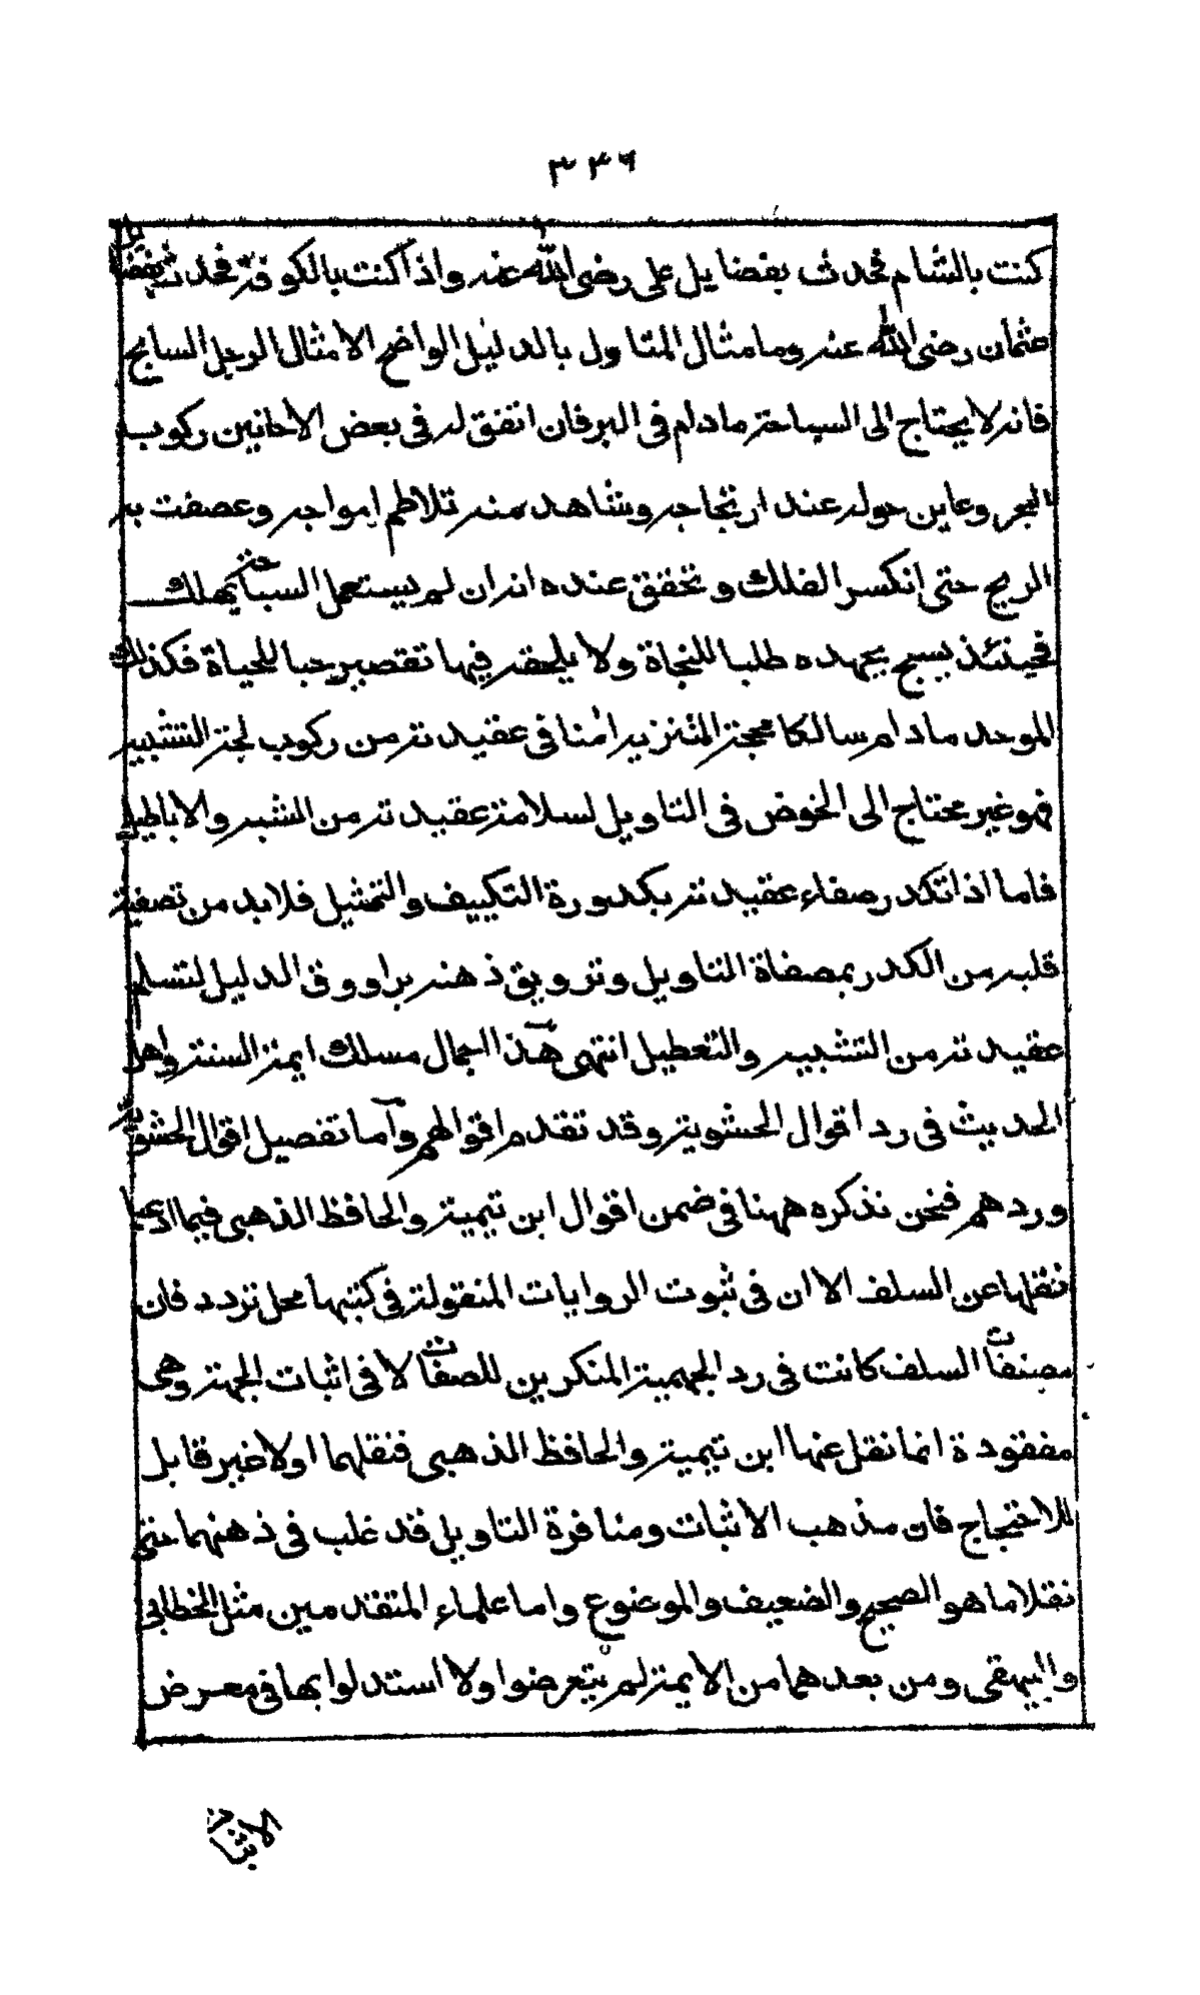 ٣٣٦
كنت بالشام فحدث بفضايل على رضى الله عنه واذا كنت بالكوفة فحدث بفضايل
عثمان رضى الله عنه وما مثال المتاول بالدليل الواضح الا مثال الرجل السابح
فانه لا يحتاج الى السباحة ما دام فى البر فان اتفق له فى بعض الاحانين ركوب
البحر وعاين هوله عند ارتجاجه وشاهد منه تلاطم امواجه وعصفت به
الريح حتى انكسر الفلك وتحقق عنده انه ان لم يستعمل السباحة يهلك
فحينئذ يسبح بجهده طلبا للنجاة ولا يلحقه فيها تقصير حبا للحياة فكذلك
الموحد ما دام سالكا محجة التنزيه امنا فى عقيدته من ركوب لجة التشبيه
فهو غير محتاج الى الخوض فى التاويل لسلامة عقيدته من الشبه والاباطيل
فاما اذا تكدر صفاء عقيدته بكدورة التكييف والتمثيل فلا بد من تصفية
قلبه من الكدر بمصفاة التاويل وترويق ذهنه براووق الدليل لتسلم
عقيدته من التشبيه والتعطيل انتهى هذا اجمال مسلك ايمة السنة واهل
الحديث فى رد اقوال الحشوية وقد تقدم اقوالهم واما تفصيل اقوال الحشوية
وردهم فنحن نذكره ههنا فى ضمن اقوال ابن تيمية والحافظ الذهبى فيما ادعيا
نقلها عن السلف الا ان فى ثبوت الروايات المنقولة فى كتبها محل تردد فان
مصنفات السلف كانت فى رد الجهمية المنكرين للصفات لا فى اثبات الجهة وهى
مفقودة انما نقل عنها ابن تيمية والحافظ الذهبى فنقلهما اولا غير قابل
للاحتجاج فان مذهب الاثبات ومنافرة التاويل قد غلب فى ذهنهما حتى
نقلا ما هو الصحيح والضعيف والموضوع واما علماء المتقدمين مثل الخطابى
والبيهقى ومن بعدهما من الايمة لم يتعرضوا ولا استدلوا بها فى معرض
الاثبات